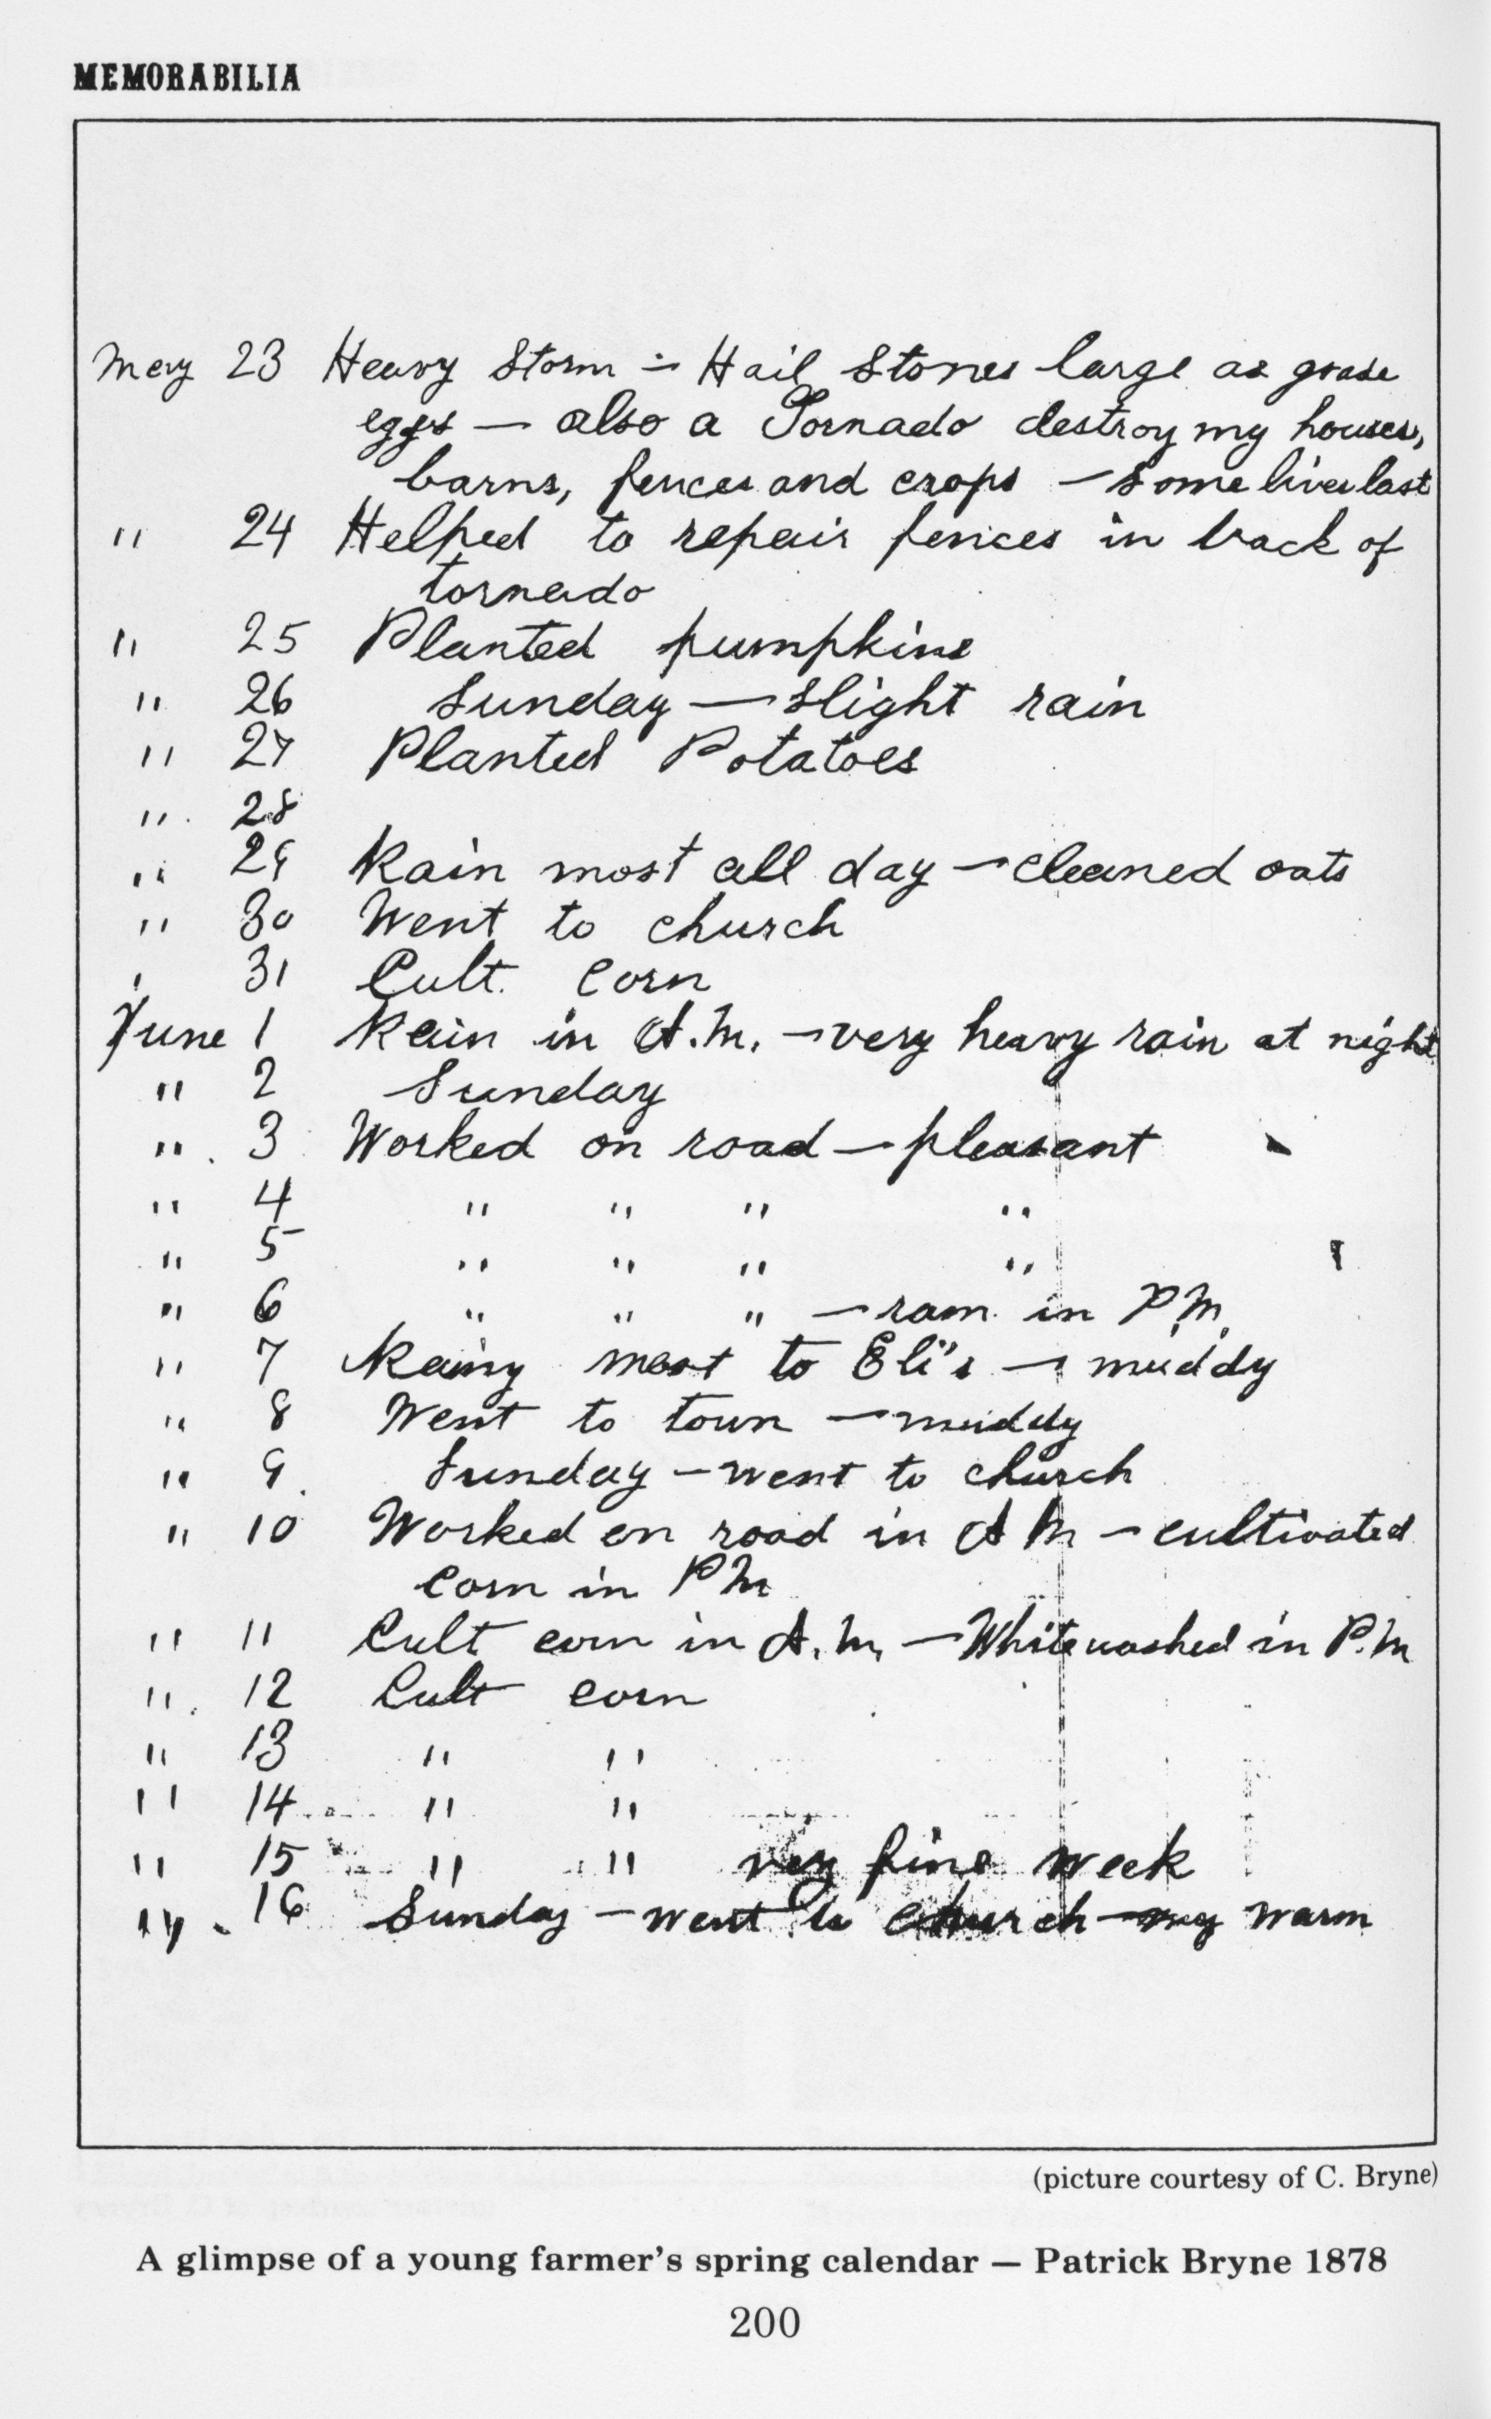 MEMORABILIA
May 23 Heavy Storm - Hail Stones large as goose
eggs — also a Tornado destroy my houses,
barns, fences and crops — some lives lost
" 24 Helped to repair fences in track of
tornado
" 25 Planted pumpkins
" 26 Sunday — slight rain
" 27 Planted Potatoes
" 28
" 29 Rain most all day — cleaned oats
" 30 Went to church
' 31 Cult. Corn
June 1 Rain in A.M. — very heavy rain at night
" 2 Sunday
" 3 Worked on road — pleasant
" 4 " " " "
" 5 " " " "
" 6 " " " — rain in P.M.
" 7 Rainy went to Eli's — muddy
" 8 Went to town — muddy
" 9 Sunday — went to church
" 10 Worked on road in A M — cultivated
corn in P M
" 11 Cult corn in A.M. — Whitewashed in P.M
" 12 Cult corn
" 13 " "
" 14 " "
" 15 " " very fine week
" 16 Sunday — went to church — very warm
(picture courtesy of C. Bryne)
A glimpse of a young farmer's spring calendar — Patrick Bryne 1878
200